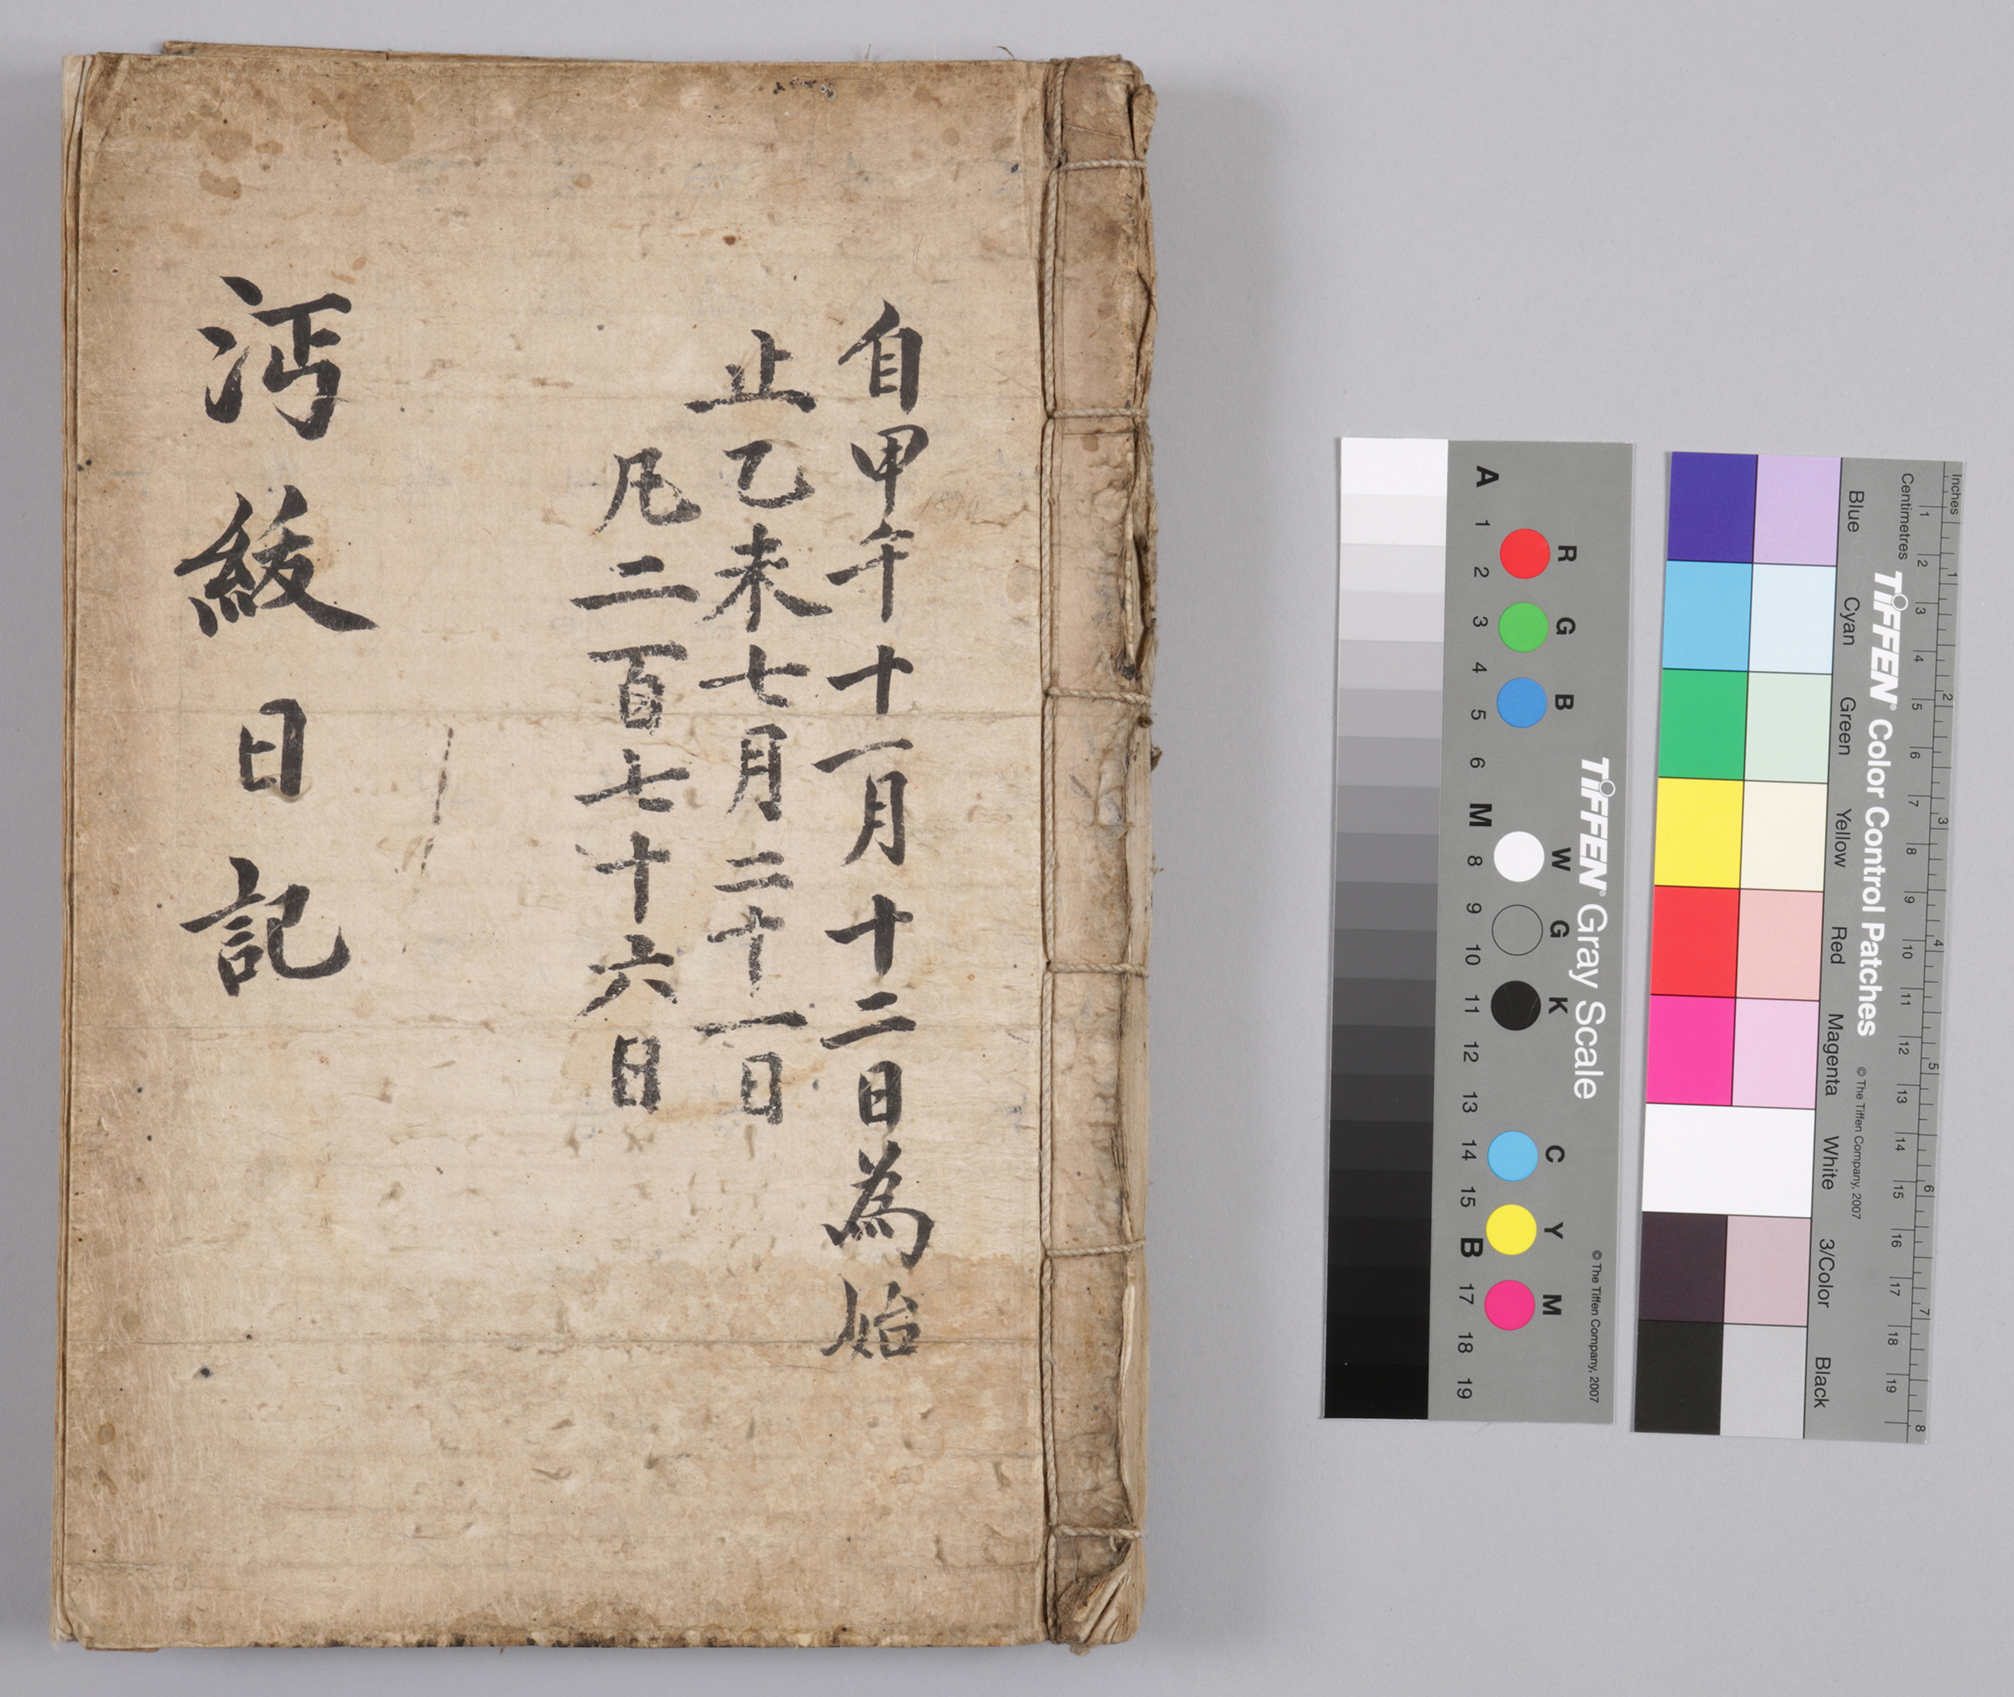 自甲午十一月十二日為始
止乙未七月二十一日
凡二百七十六日
沔紱日記
TIFFEN® Gray Scale
© The Tiffen Company, 2007
R G B W G K C Y M
A 1 2 3 4 5 6 M 8 9 10 11 12 13 14 15 B 17 18 19
Inches
1 2 3 4 5 6 7 8
Centimetres
1 2 3 4 5 6 7 8 9 10 11 12 13 14 15 16 17 18 19
TIFFEN® Color Control Patches
© The Tiffen Company, 2007
Blue Cyan Green Yellow Red Magenta White 3/Color Black